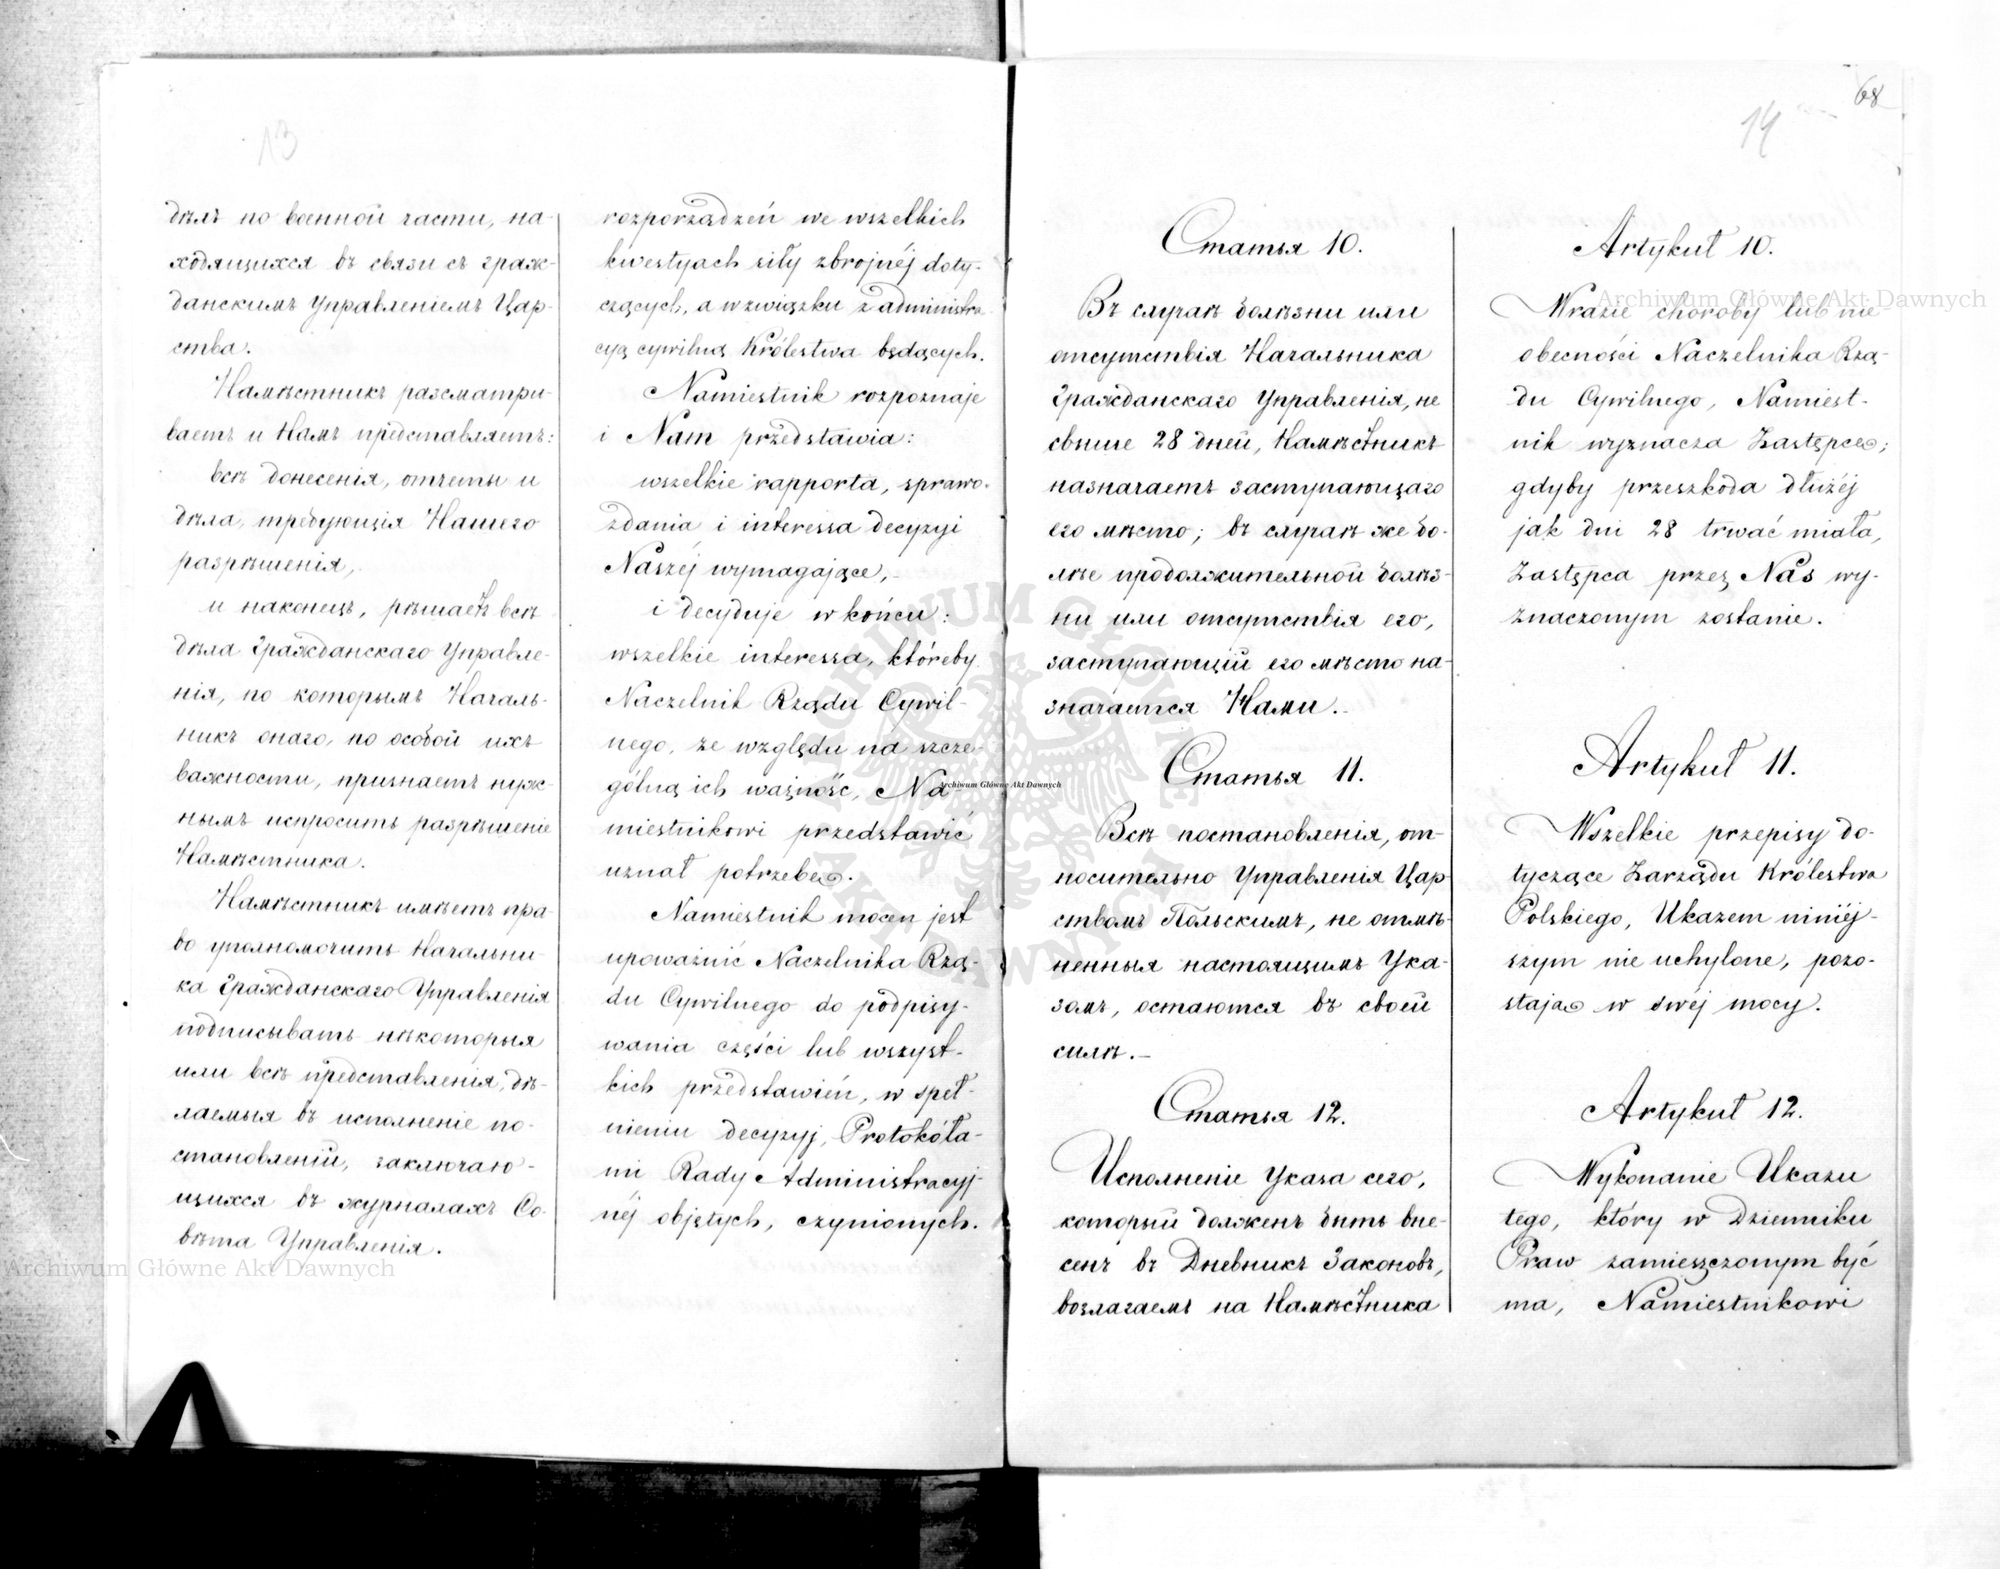 13
дѣлъ по военной части, на-
ходящихся въ связи съ граж-
данскимъ Управленіемъ Цар-
ства.
Намѣстникъ разсматри-
ваетъ и Намъ представляетъ:
всѣ донесенія, отчеты и
дѣла, требующія Нашего
разрѣшенія,
и наконецъ, рѣшаетъ всѣ
дѣла Гражданскаго Управле-
нія, по которымъ Началь-
никъ онаго, по особой ихъ
важности, признаетъ нуж-
нымъ испросить разрѣшеніе
Намѣстника.
Намѣстникъ имѣетъ пра-
во уполномочить Начальни-
ка Гражданскаго Управленія
подписывать нѣкоторыя
или всѣ представленія, дѣ-
лаемыя въ исполненіе по-
становленій, заключаю-
щихся въ журналахъ Со-
вѣта Управленія.
rozporządzeń we wszelkich
kwestyach siły zbrojnéj doty-
czących, a w związku z administra-
cyą cywilną Królestwa będących.
Namiestnik rozpoznaje
i Nam przedstawia:
wszelkie rapporta, sprawo-
zdania i interessa decyzyi
Naszéj wymagające,
i decyduje w końcu:
wszelkie interessa, któreby
Naczelnik Rządu Cywil-
nego, ze względu na szcze-
gólną ich ważność, Na-
miestnikowi przedstawić
uznał potrzebę.
Namiestnik mocen jest
upoważnić Naczelnika Rzą-
du Cywilnego do podpisy-
wania części lub wszyst-
kich przedstawień, w speł-
nieniu decyzyj, Protokóła-
mi Rady Administracyj-
néj objętych, czynionych.
68
14
Статья 10.
Въ случаѣ болѣзни или
отсутствія Начальника
Гражданскаго Управленія, не
свыше 28 дней, Намѣстникъ
назначаетъ заступающаго
его мѣсто; въ случаѣ же бо-
лѣе продолжительной болѣз-
ни или отсутствія его,
заступающій его мѣсто на-
значается Нами.
Статья 11.
Всѣ постановленія, от-
носительно Управленія Цар
ствомъ Польскимъ, не отмѣ-
ненныя настоящимъ Ука-
зомъ, остаются въ своей
силѣ.
Статья 12.
Исполненіе Указа сего,
который долженъ быть вне-
сенъ въ Дневникъ Законовъ,
возлагаемъ на Намѣстника
Artykuł 10.
W razie choroby lub nie-
obecności Naczelnika Rzą-
du Cywilnego, Namiest-
nik wyznacza Zastępcę;
gdyby przeszkoda dłużéj
jak dni 28 trwać miała,
Zastępca przez Nas wy-
znaczonym zostanie.
Artykuł 11.
Wszelkie przepisy do-
tyczące Zarządu Królestwa
Polskiego, Ukazem niniéj-
szym nie uchylone, pozo-
stają w swéj mocy.
Artykuł 12.
Wykonanie Ukazu
tego, który w Dzienniku
Praw zamieszczonym być
ma, Namiestnikowi
Archiwum Główne Akt Dawnych
Archiwum Główne Akt Dawnych
Archiwum Główne Akt Dawnych
ARCHIWUM GŁÓWNE AKT DAWNYCH